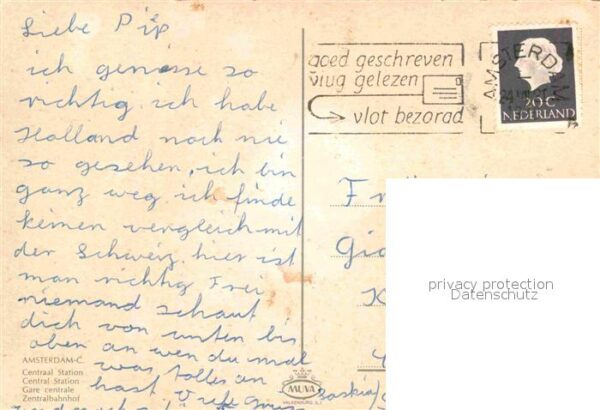 Liebe Pip
ich geniese so
richtig ich habe
Holland noch nie
so gesehen, ich bin
ganz weg ich finde
keinen vergleich mit
der Schweiz hier ist
man richtig Frei
niemand schaut
dich von unten bis
oben an wen du mal
was tolles an
hast
AMSTERDAM-C.
Centraal Station
Central Station
Gare centrale
Zentralbahnhof
MUVA
VALKENBURG
goed geschreven
vlug gelezen
vlot bezorgd
AMSTERDAM
20 C
NEDERLAND
privacy protection
Datenschutz